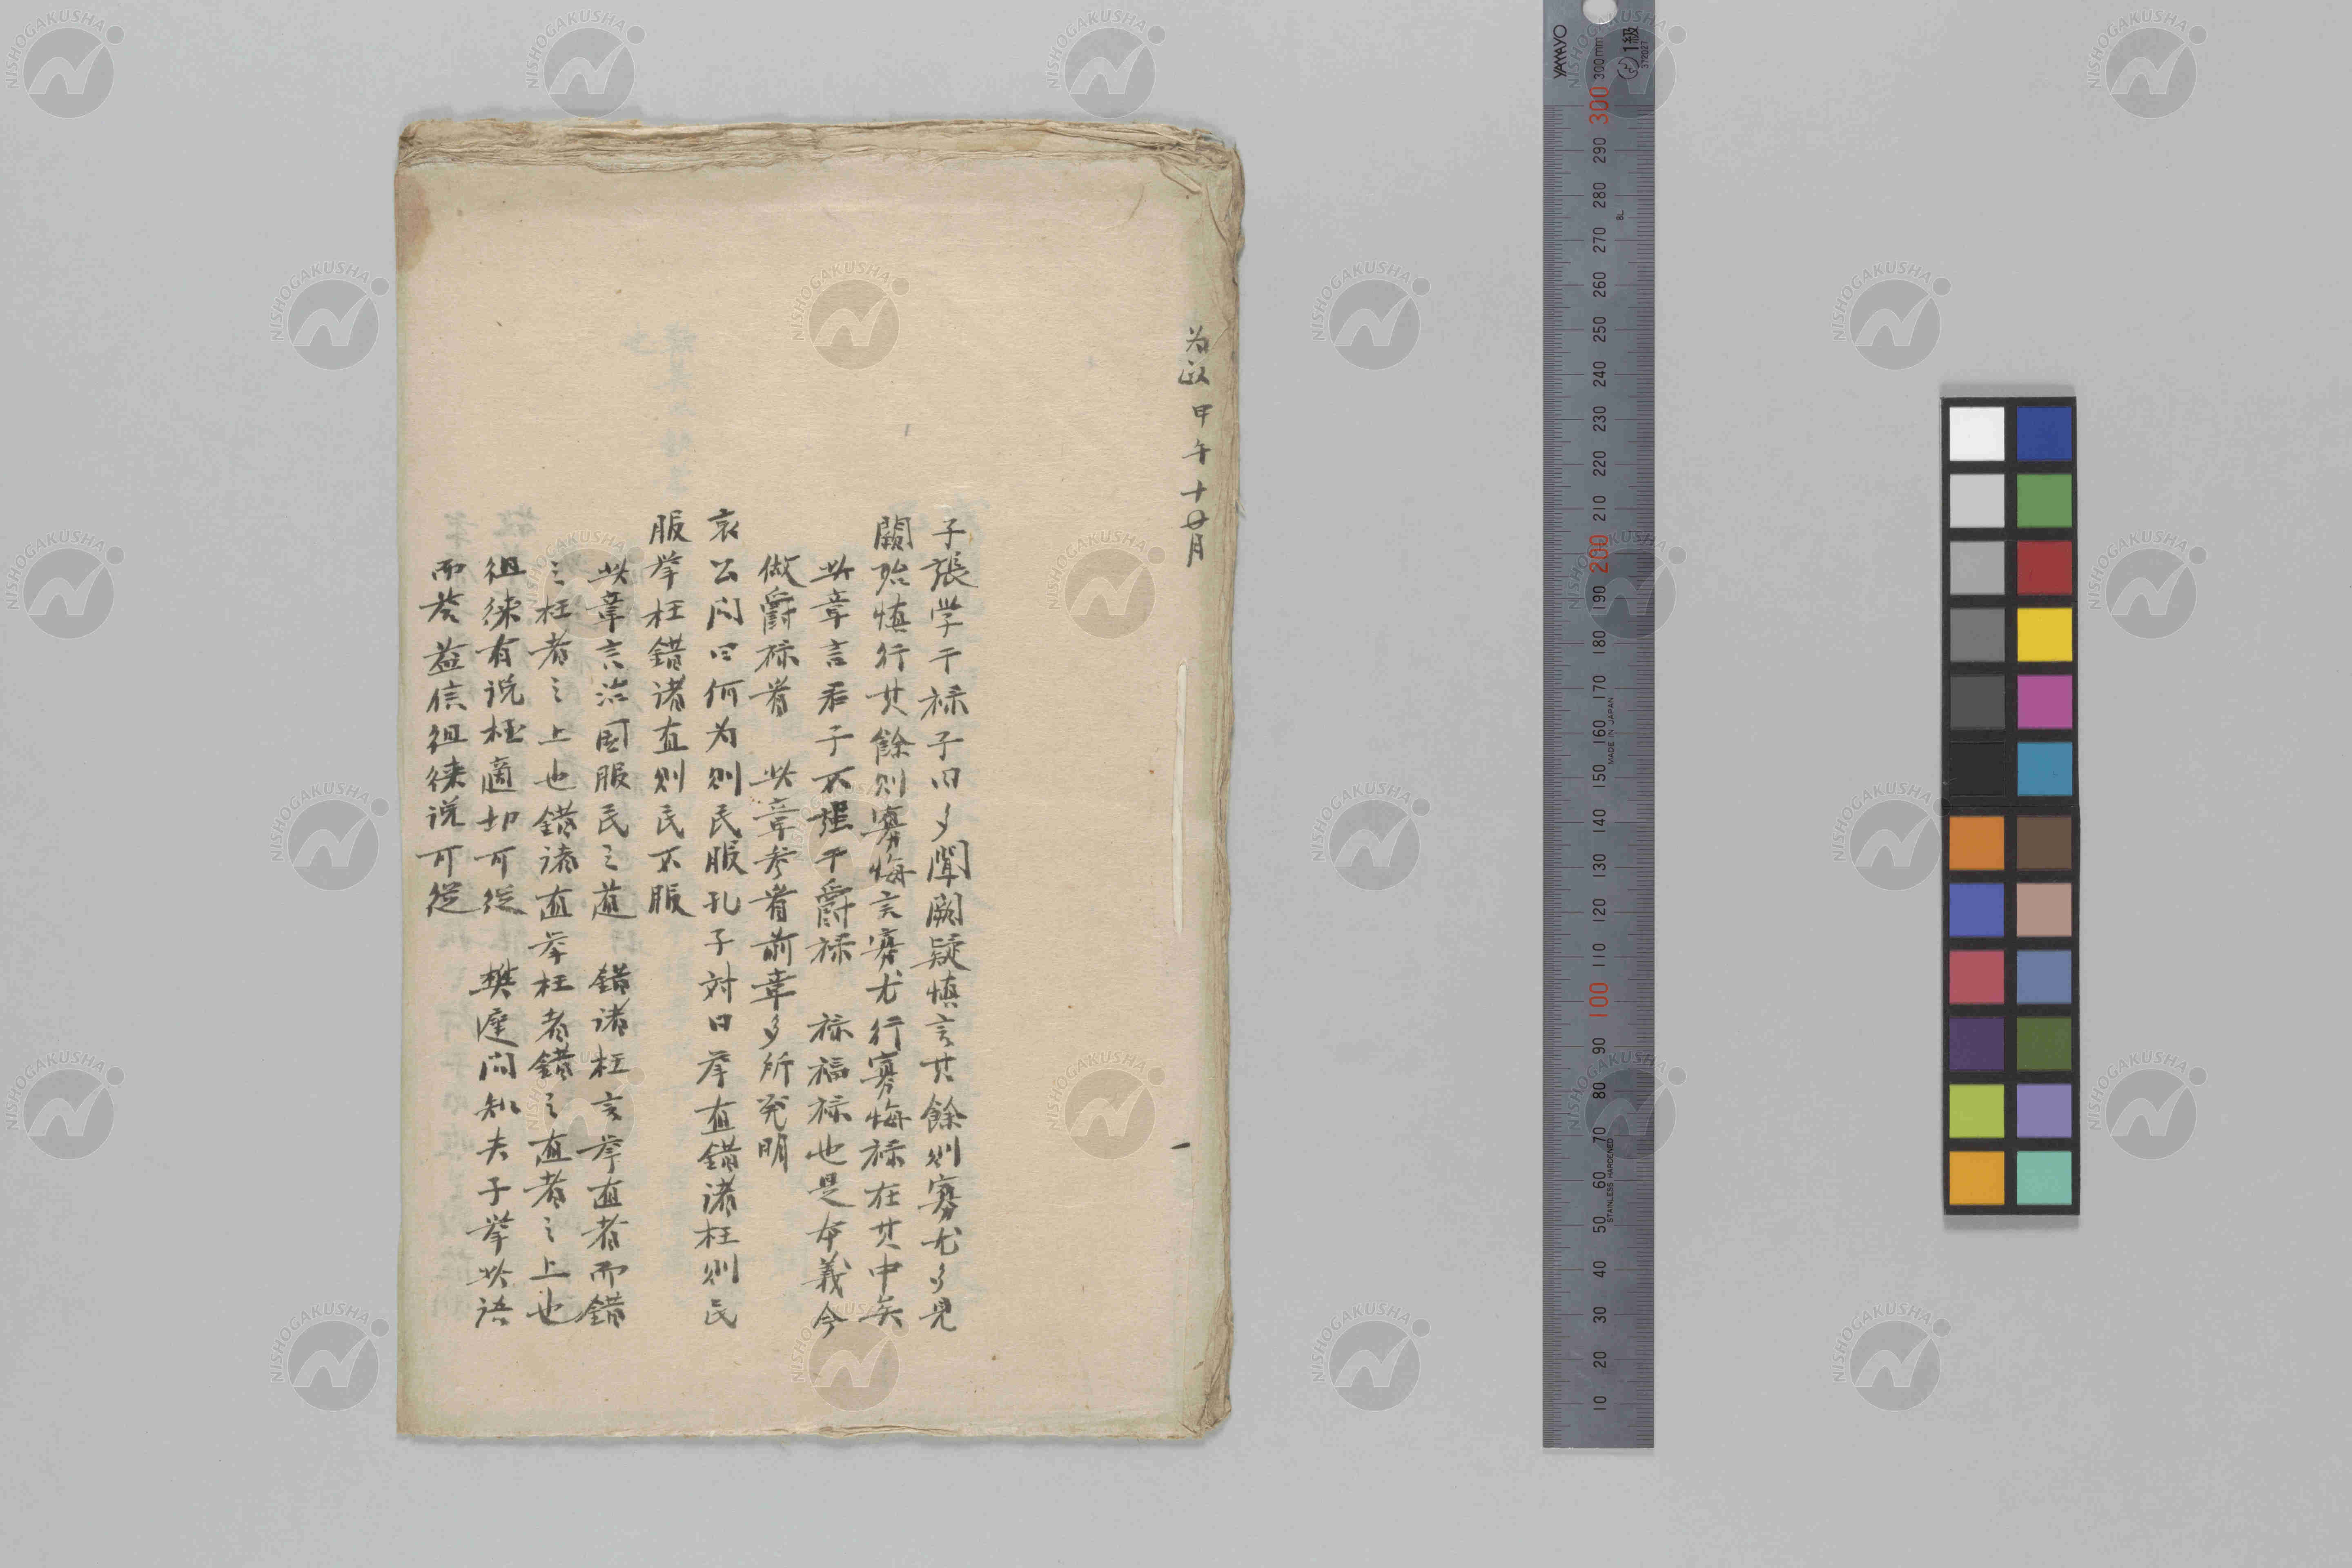 为政 甲午十月
子張学干禄子曰多聞闕疑慎言其餘則寡尤多見
闕殆慎行其餘則寡悔言寡尤行寡悔禄在其中矣
此章言君子不强干爵禄 禄福禄也是本義今
做爵禄者 此章参看前章多所発明
哀公问曰何为則民服孔子対曰挙直錯诸枉則民
服挙枉錯诸直則民不服
此章言治国服民之道 錯诸枉言挙直者而錯
之枉者之上也錯诸直挙枉者錯之直者之上也
徂徠有说極適切可従 樊遲问知夫子挙此语
而答益信徂徠说可従
YAMAYO
1級
300mm
372027
300
290
280
270
260
250
240
230
220
210
200
190
180
170
160
150
140
130
120
110
100
90
80
70
60
50
40
30
20
10
MADE IN JAPAN
STAINLESS HARDENED
NISHOGAKUSHA